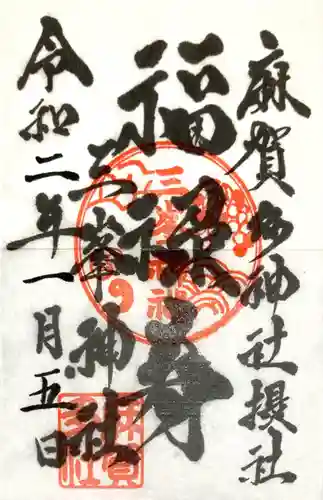 麻賀多神社摂社
福禄寿
三峯神社
令和二年一月五日
三峯神社